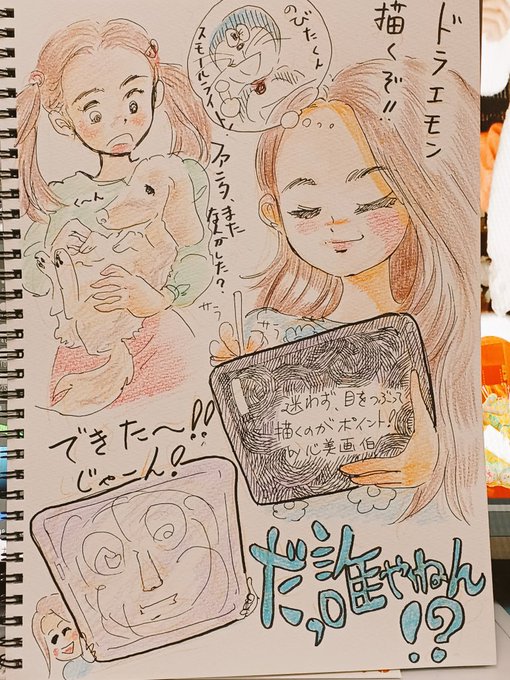 ドラエモン
描くぞ!!
のびたくん
スモールライト!
く〜ん
サラ
サラ
迷わず、目をつぶって
描くのがポイント!
by心美画伯
できた〜!!
じゃーん!
だ,誰やねん
!?